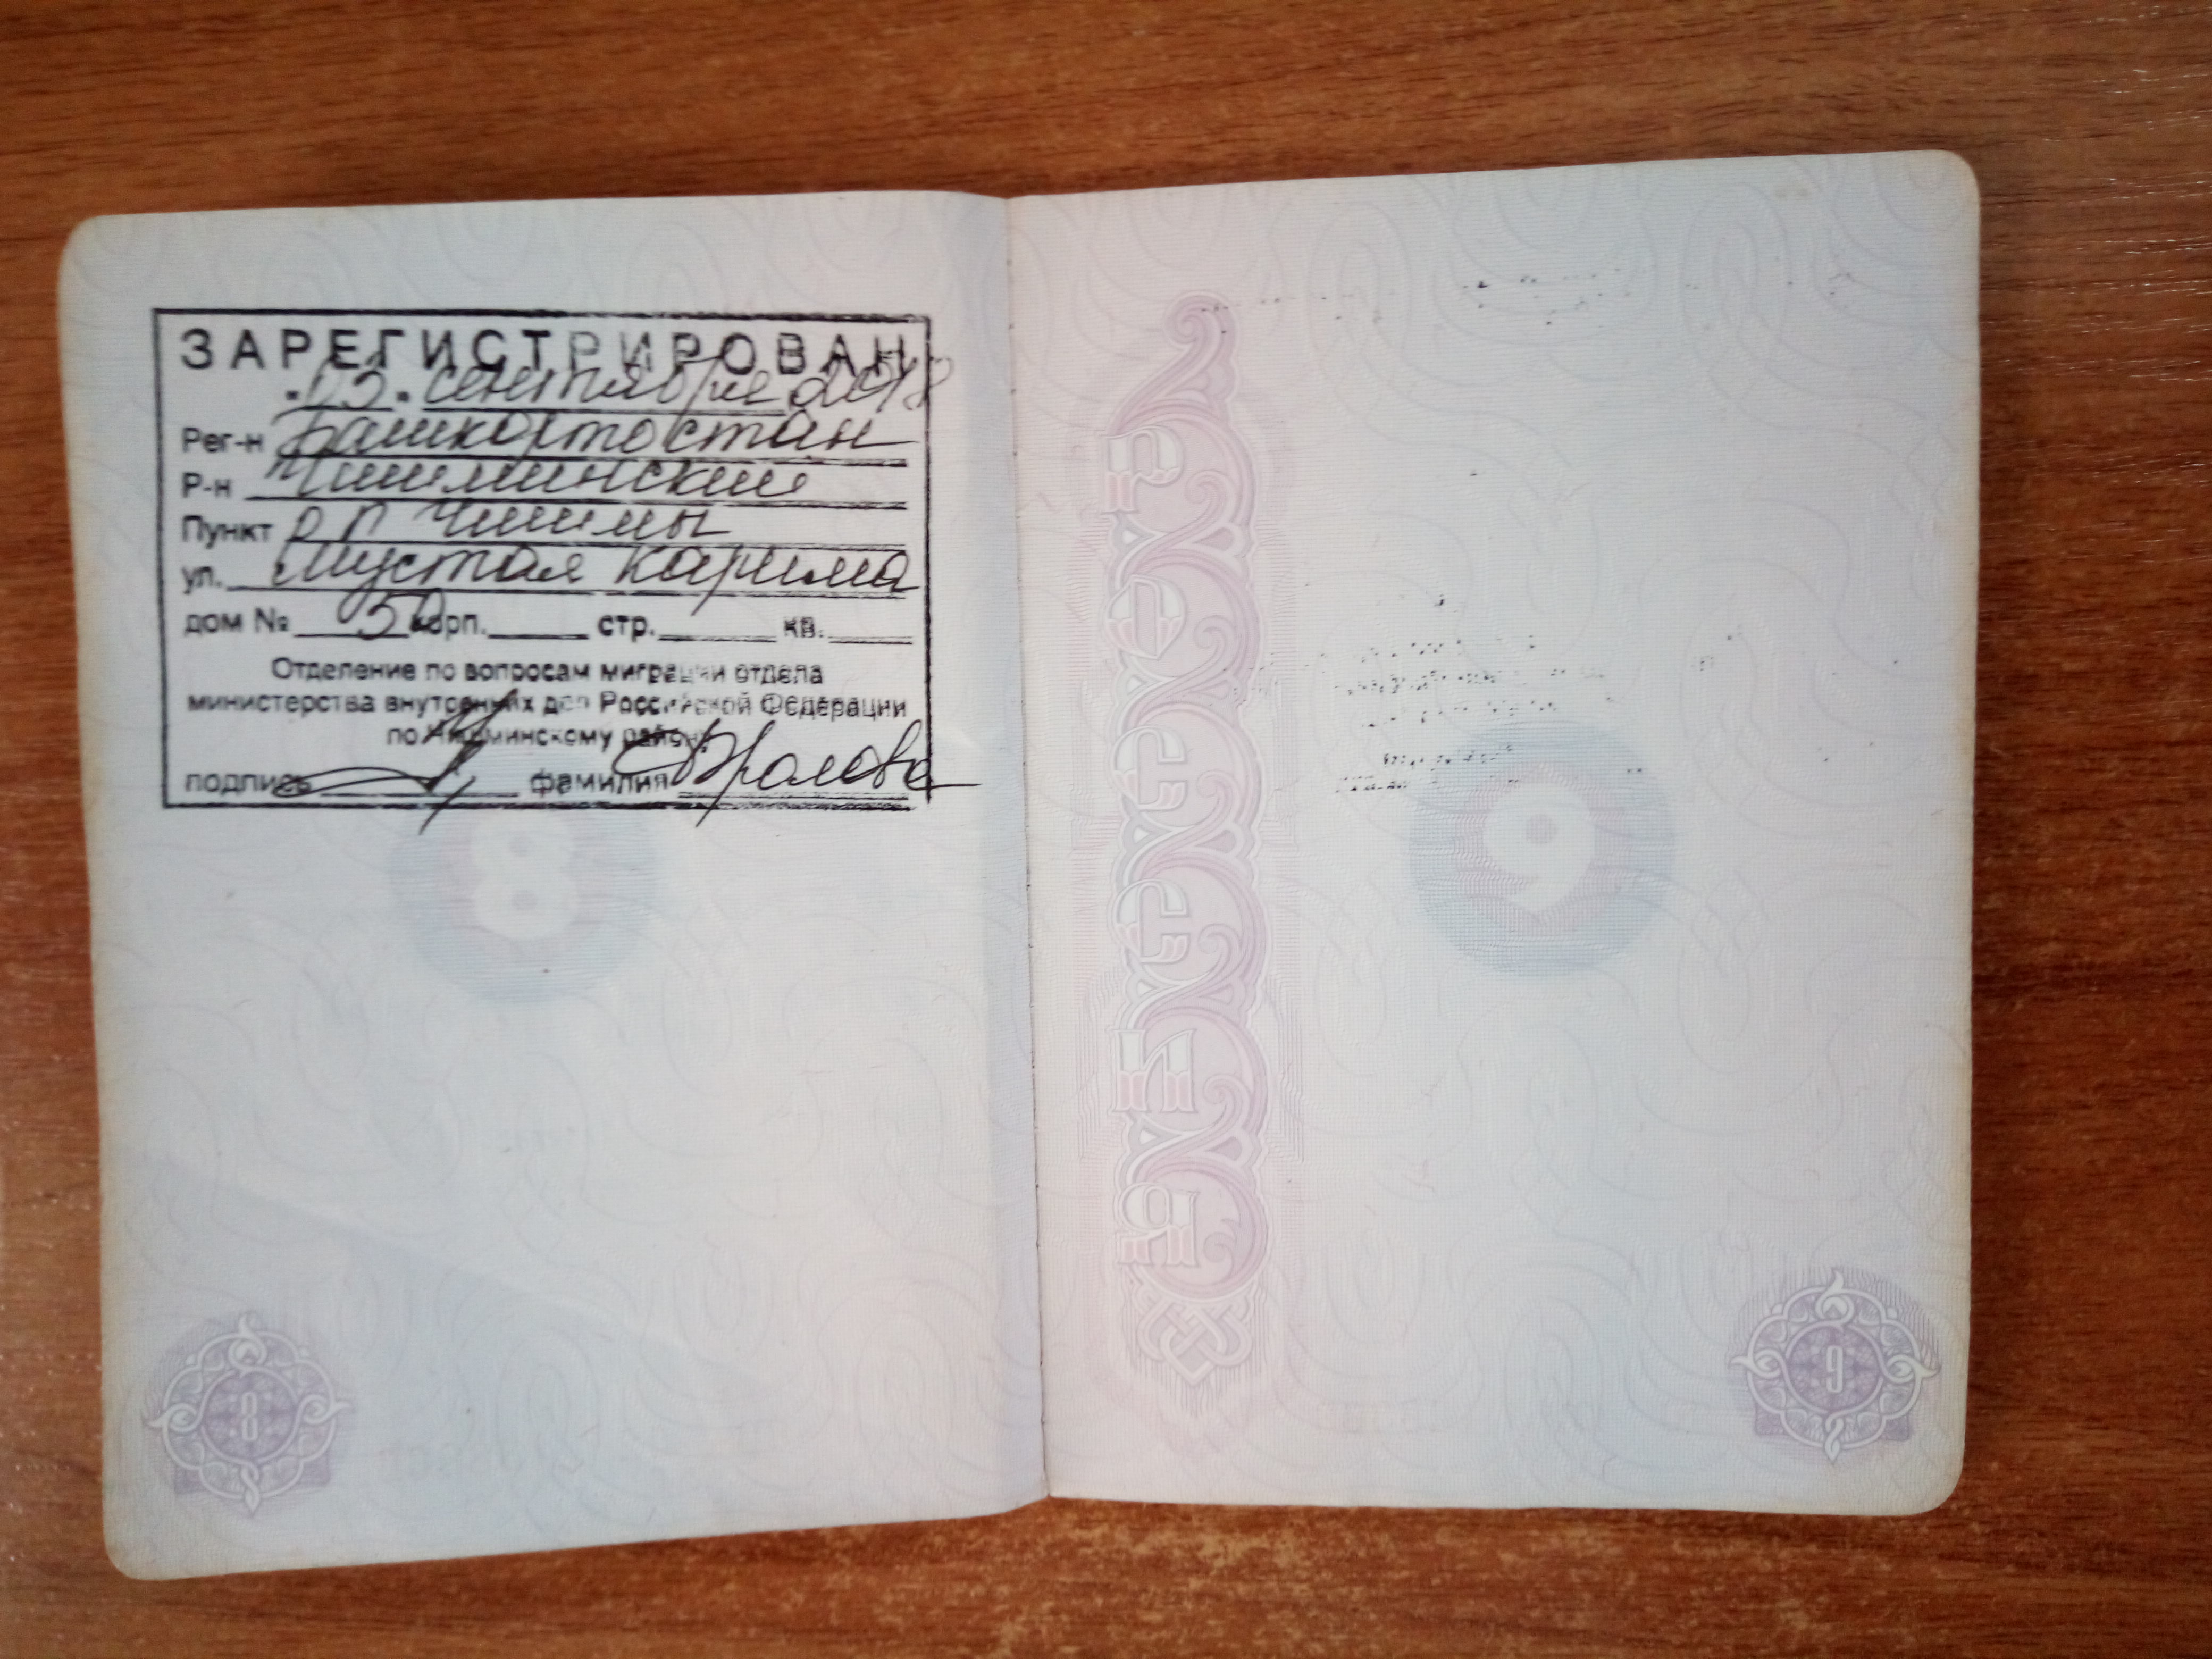 ЗАРЕГИСТРИРОВАН
"05" сентября 2018
Рег-н Башкортостан
Р-н Чишминский
Пункт р п Чишмы
ул. Мустая Карима
дом № 50 корп. стр. кв.
Отделение по вопросам миграции отдела
министерства внутренних дел Российской Федерации
по Чишминскому району
подпись фамилия
8
8
9
9